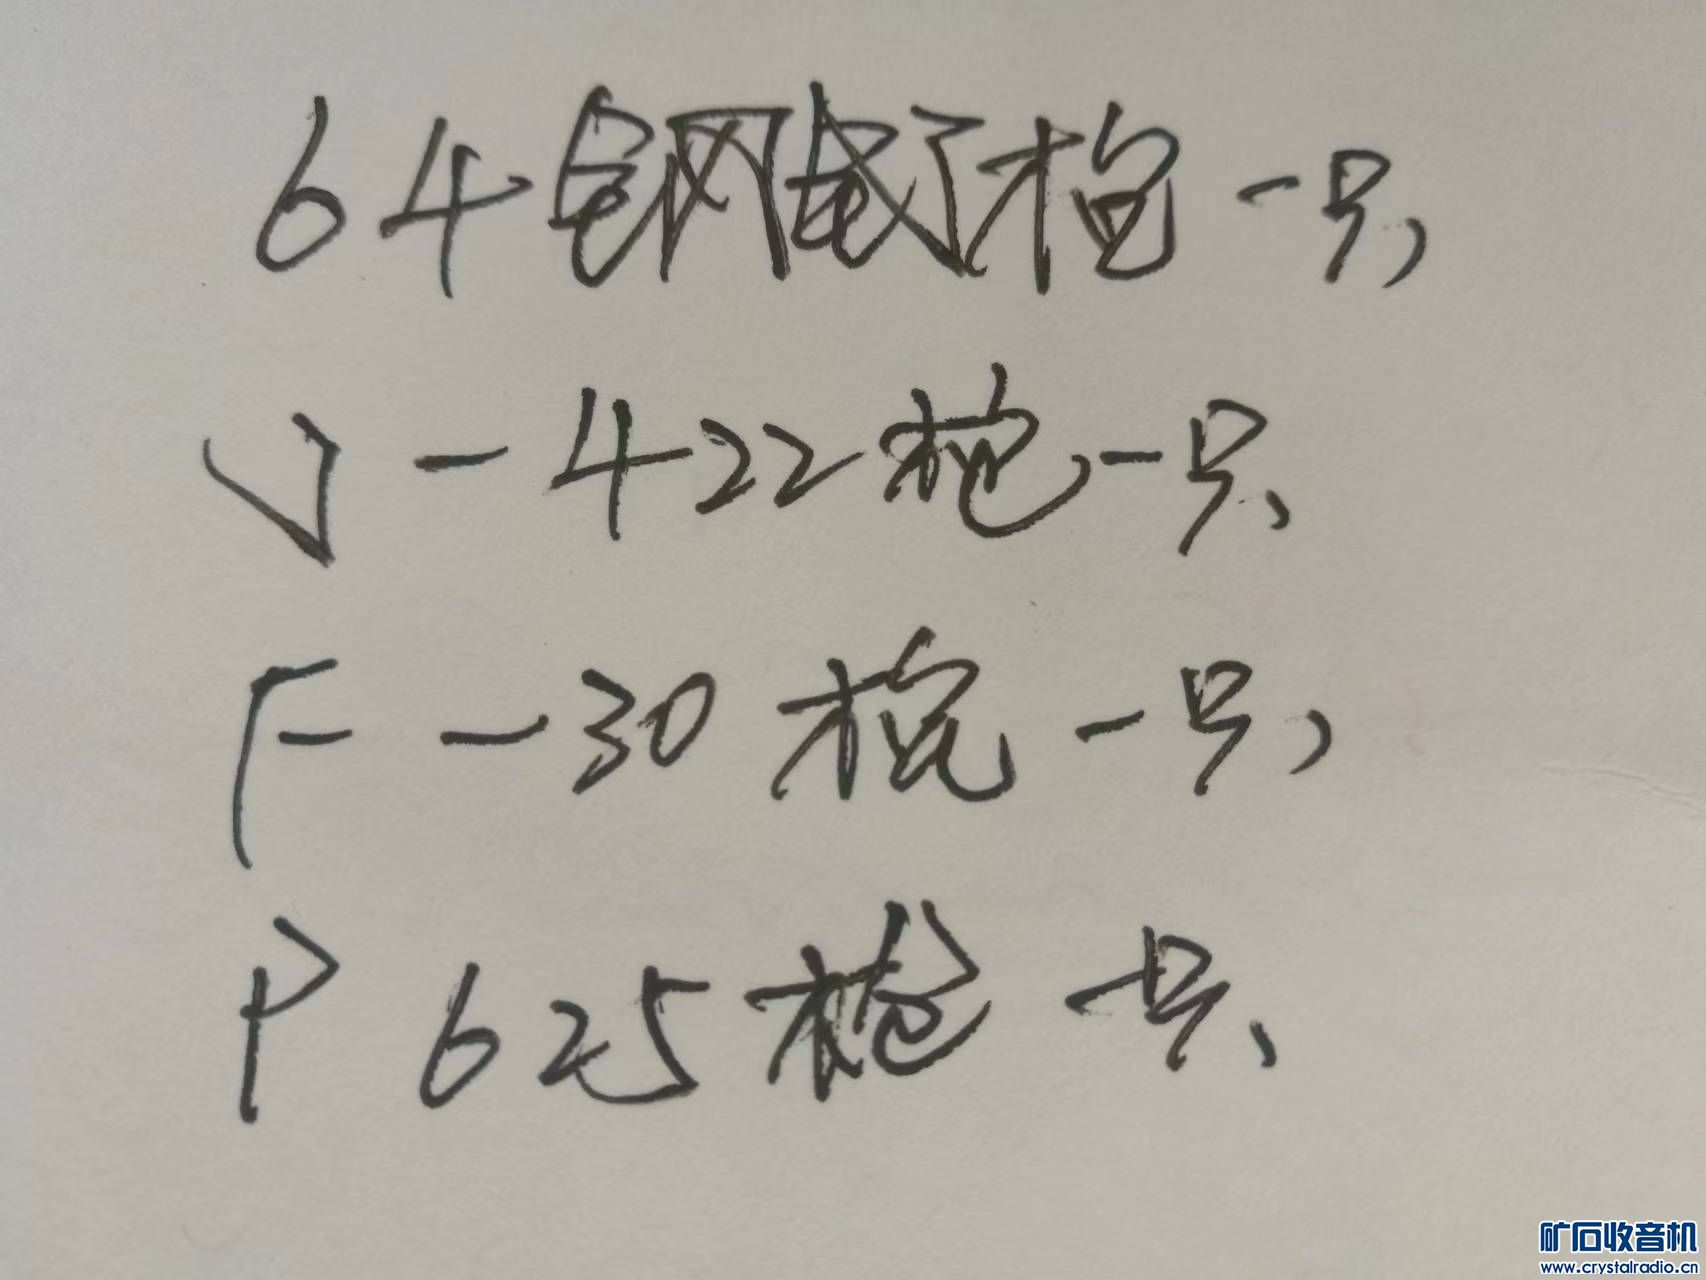 64钢枪一只，
J－422枪一只、
F－30枪一只，
P625枪一只、
矿石收音机
www.crystalradio.cn